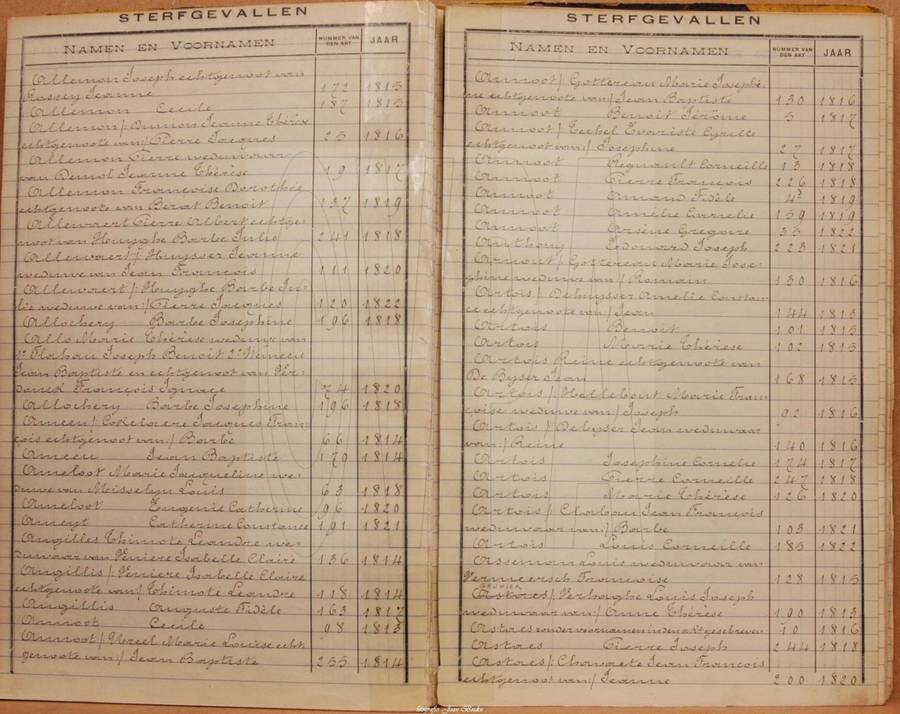 STERFGEVALLEN
NAMEN EN VOORNAMEN NUMMER VAN DEN AKT JAAR
Allemon Joseph echtgenoot van
Gossey Jeanne 172 1815
Allemon Cecile 187 1815
Allemon /: Dumon Jeanne Thérèse
echtgenoote van:/ Pierre Jacques 25 1816
Allemon Pierre weduwaar
van Demol Jeanne Thérèse 19 1817
Allemon Françoise Dorothée
echtgenoote van Berat Benoit 137 1819
Allewaert Pierre Albert echtge-
noot van Huyghe Barbe Julie 241 1818
Allewaert /: Huysser Jeanne
weduwe van Jean François 111 1820
Allewaert /: Huyghe Barbe Ju-
lie weduwe van:/ Pierre Jacques 120 1822
Allochery Barbe Josephine 196 1818
Allo Marie Thérèse weduwe van
1° Flahau Joseph Benoit 2°
Jean Baptiste en echtgenoot van Ver-
François Ignace 74 1820
Allochery Barbe Josephine 196 1818
Ameeu /: Jacques Fran
çois echtgenoot van:/ Barbe 66 1814
Ameeu Jean Baptiste 170 1814
Ameloot Marie Jacqueline we-
duwe van Misselyn Louis 63 1818
Ameloot Eugenie Catherine 96 1820
Ameyt Catherine Constance 191 1821
Angilles Thimote Leandre we-
duwaar van Veniere Isabelle Claire 136 1814
Angillis /: Veniere Isabelle Claire
echtgenoote van:/ Thimote Leandre 118 1814
Angillis Auguste Fidèle 163 1817
Annoot Cecile 98 1813
Annoot /: Marie Louise echt
genoote van:/ Jean Baptiste 255 1814
STERFGEVALLEN
NAMEN EN VOORNAMEN NUMMER VAN DEN AKT JAAR
Annoot /: Gottereau Marie Josephi-
ne echtgenoote van:/ Jean Baptiste 130 1816
Annoot Benoit Jerome 5 1817
Annoot /: Evariste Cyrille
echtgenoot van:/ Josephine 27 1817
Annoot Regnault Corneille 13 1818
Annoot Pierre François 226 1818
Annoot Amand Fidèle 1819
Annoot Amelie Cornelie 159 1819
Annoot Arsène Gregoire 33 1822
Anthony Edouard Joseph 223 1821
Arnout /: Gottereau Marie Jose-
phine weduwe van:/ Romain 130 1816
Artois /: Debuysser Amelie Constan
ce echtgenoote van:/ Jean 144 1813
Artois Benoit 101 1815
Artois Marie Thérèse 102 1815
Artois Reine echtgenoote van
De Byser Jean 168 1815
Artois /: Hellebout Marie Fran
çoise weduwe van:/ Joseph 92 1816
Artois /: Debyser Jean weduwaar
van:/ Reine 140 1816
Artois Josephine Cornelie 174 1817
Artois Pierre Corneille 247 1818
Artois Marie Thérèse 126 1820
Artois /: Jean François
weduwaar van:/ Barbe 103 1821
Artois Louis Corneille 185 1822
Asseman Louis weduwaar van
Vermeersch Françoise 128 1815
Astaes /: Verhaghe Louis Joseph
weduwaar van:/ Anne Thérèse 190 1813
Astaes zonder voornamen in den akt geschreven 10 1816
Astaes Pierre Joseph 244 1818
Astaes /: Jean François
echtgenoot van:/ Jeanne 200 1820